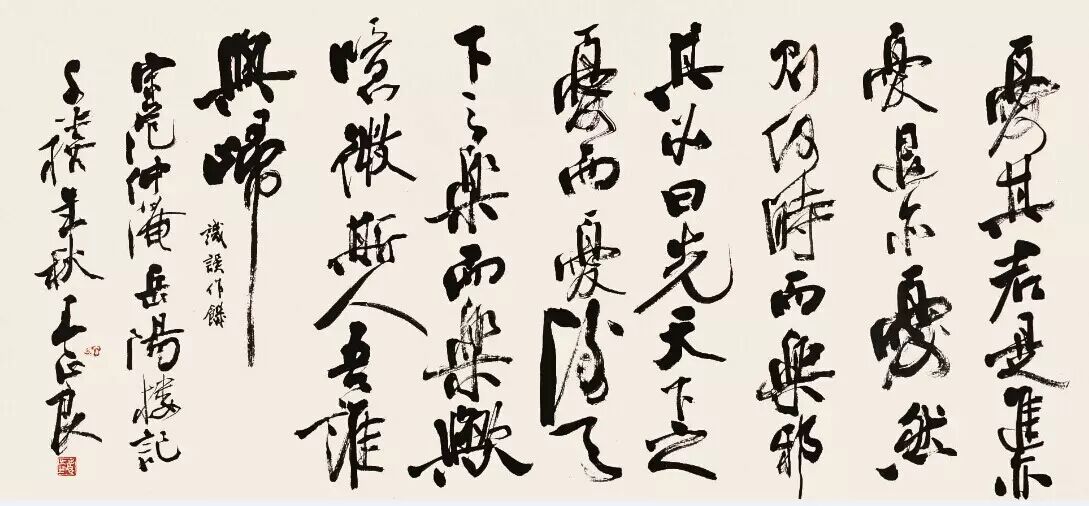 憂其君是進亦
憂退亦憂然
則何時而樂邪
其必曰先天下之
憂而憂後天
下之樂而樂歟
噫微斯人吾誰
與歸
誤作
宋范仲淹岳陽楼記
年秋王正良